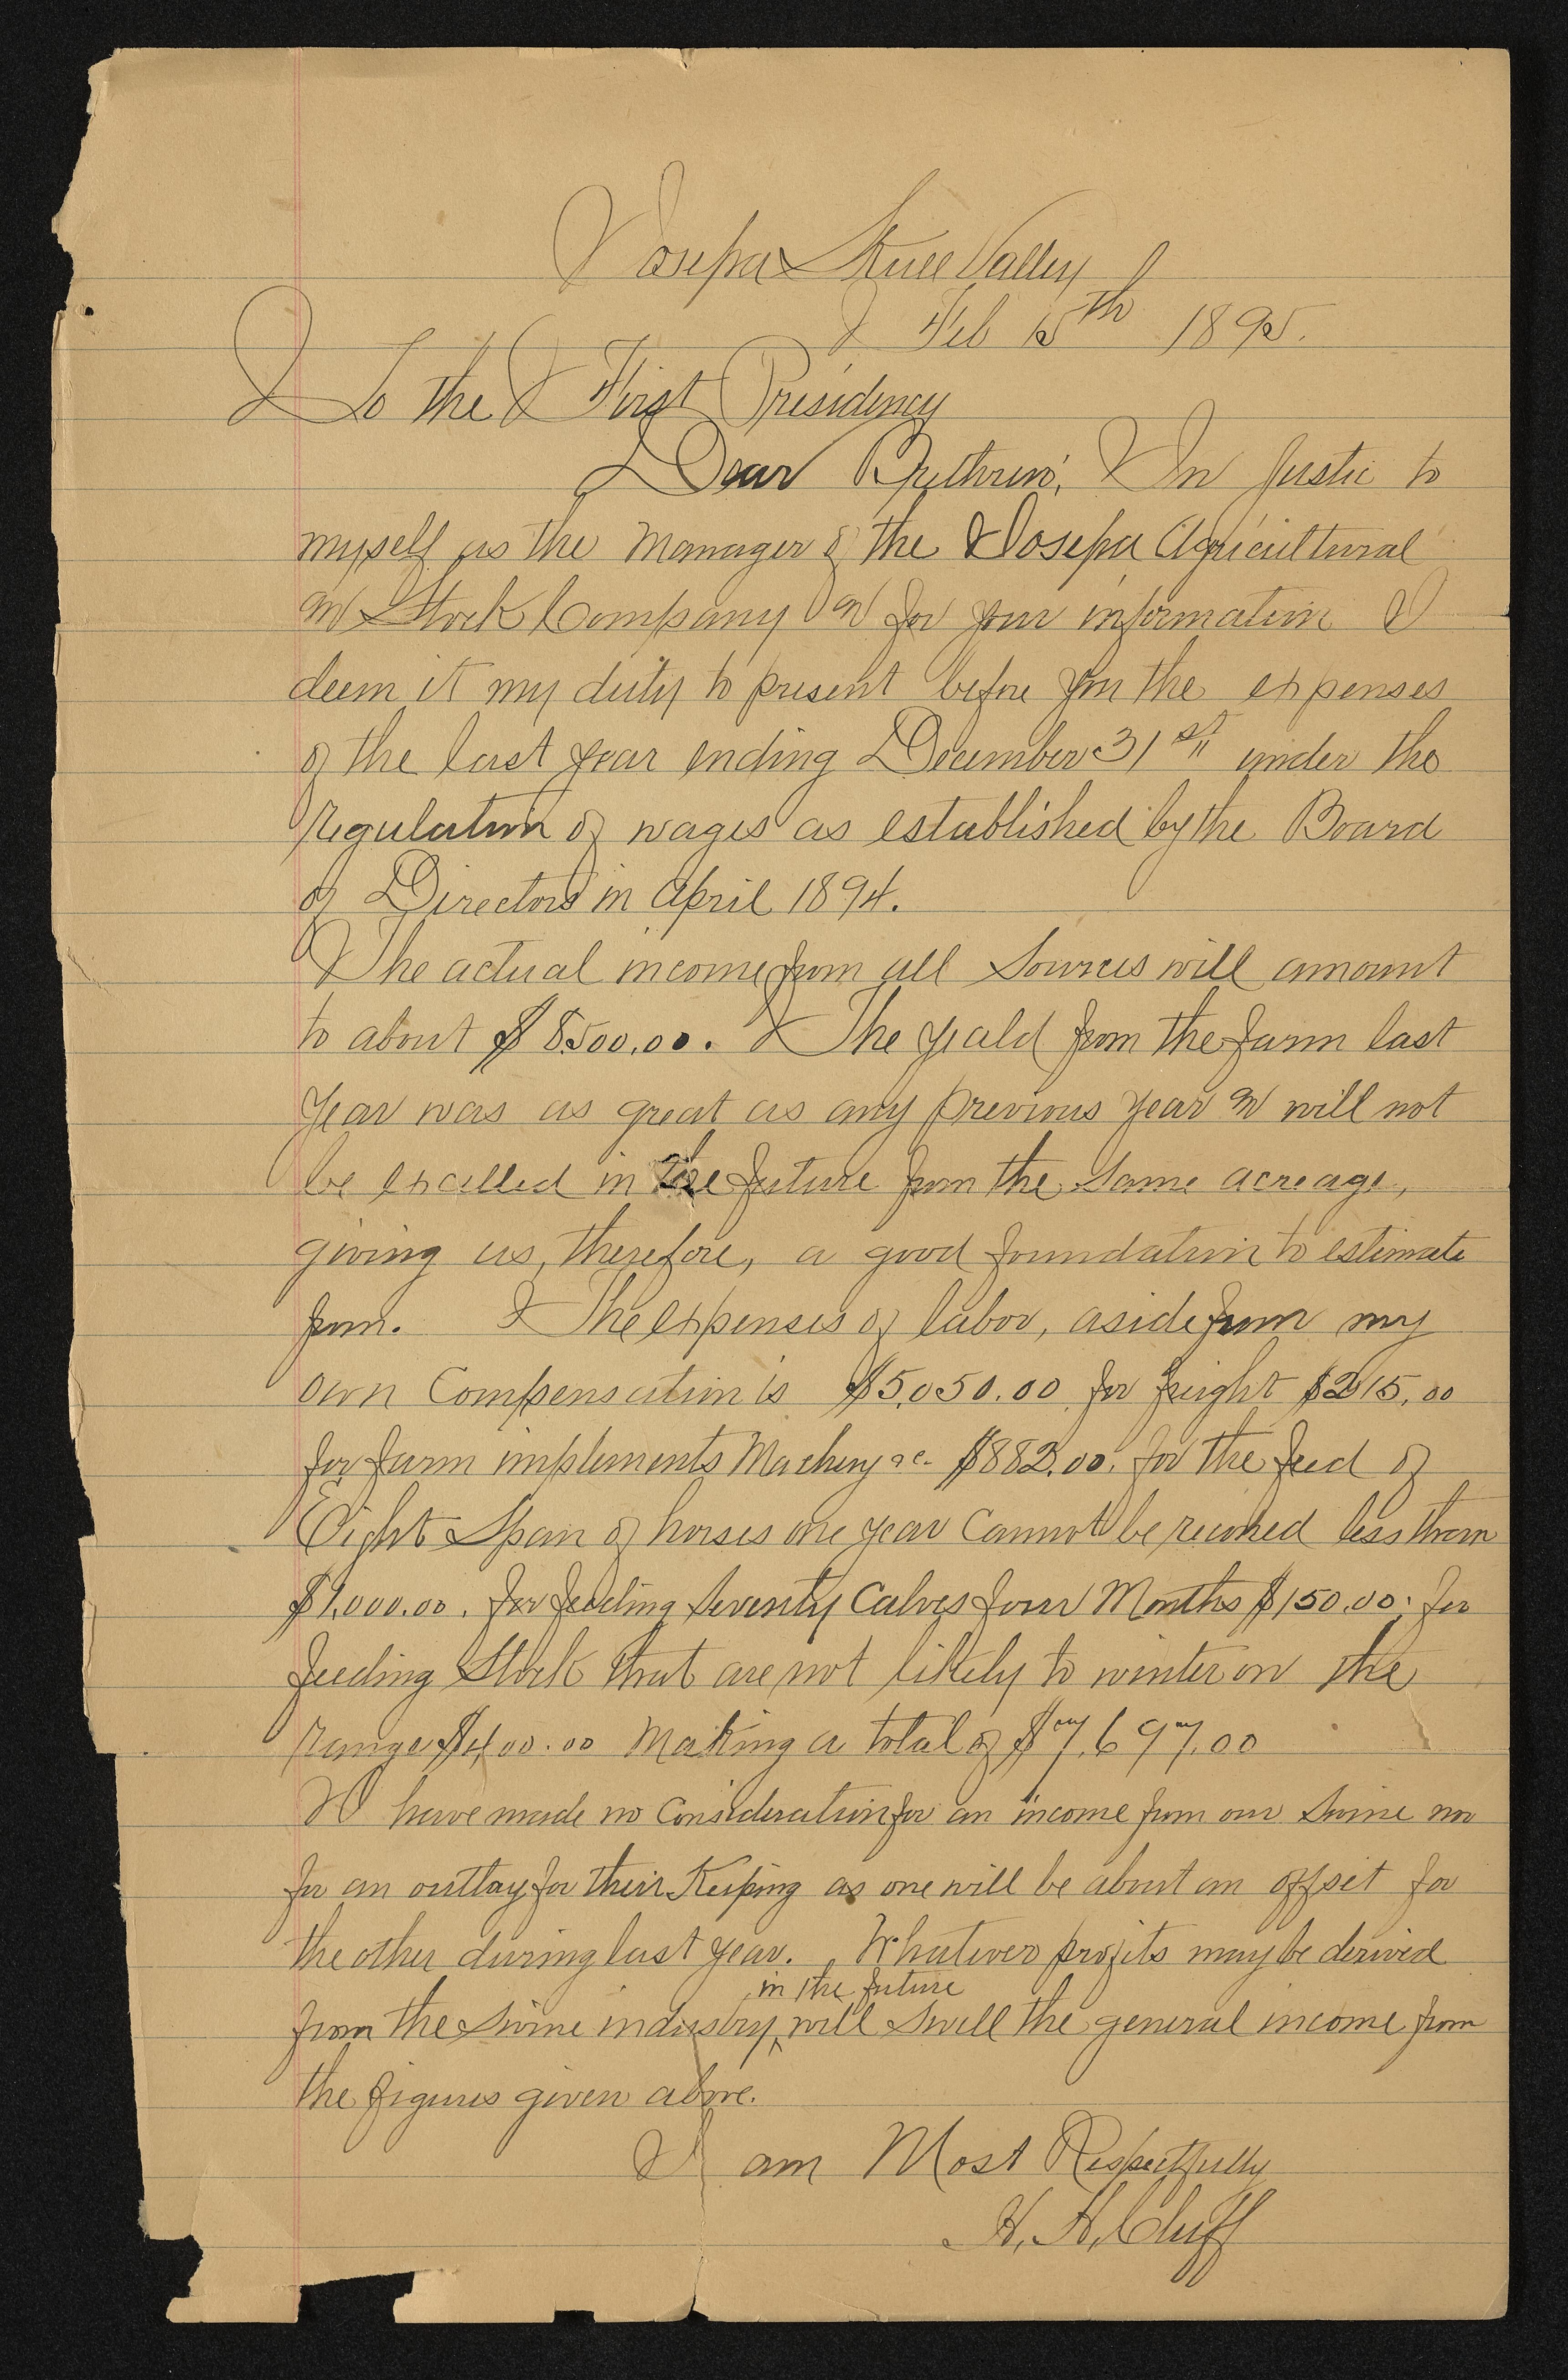 Iosepa Skull Valley
Feb 15th 1895.
To the First Presidency
Dear Brethren; In Justic to
myself as the Manager of the Iosepa Agricultural
and Stock Company and for your information I
deem it my duty to present before you the expenses
of the last year ending December 31st under the
regulation of wages as established by the Board
of Directors in April 1894.
The actual income from all Sources will amount
to about $8500.00. The yeald from the farm last
year was as great as any previous year and will not
be excelled in the future from the same acreage,
giving us, therefore, a good foundation to estimate
from. The expenses of labor, aside from my
own Compensation is $5,050.00 for freight $215.00
for farm implements Machery &c. $882.00. for the feed of
Eight Span of horses one year Cannot be reconed less than
$1,000.00. for feeding Seventy Calves four Months $150.00. for
feeding Stock that are not likely to winter on the
range $400.00 Making a total of $7,697.00
I have made no Consideration for an income from our Swine nor
for an outlay for their Keeping as one will be about an offset for
the other during last year. Whatever profits may be derived
in the future
from the swine industry, will swell the general income from
the figures given above.
I am Most Respectfully
H. H. Cluff